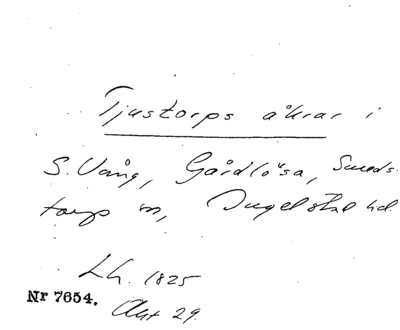 Tjustorps åkrar i
S. Vång, Gårdlösa, Smeds-
torps sn, Ingelstad hd.
Lh. 1825
Nr 7654. Akt 29